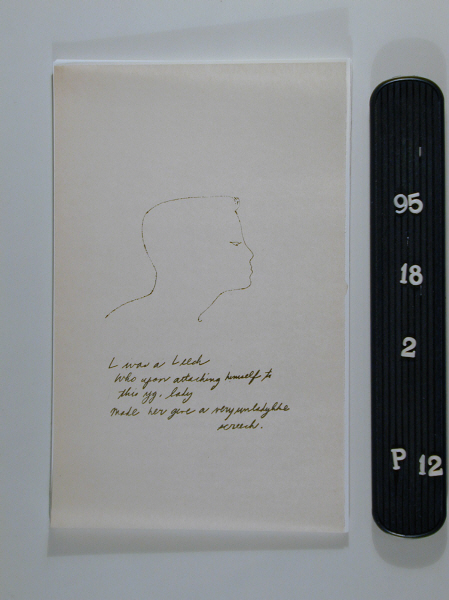 L was a Leech
Who upon attaching himself to
this yg. lady
Made her give a very unladylike
screech.
95
18
2
P 12